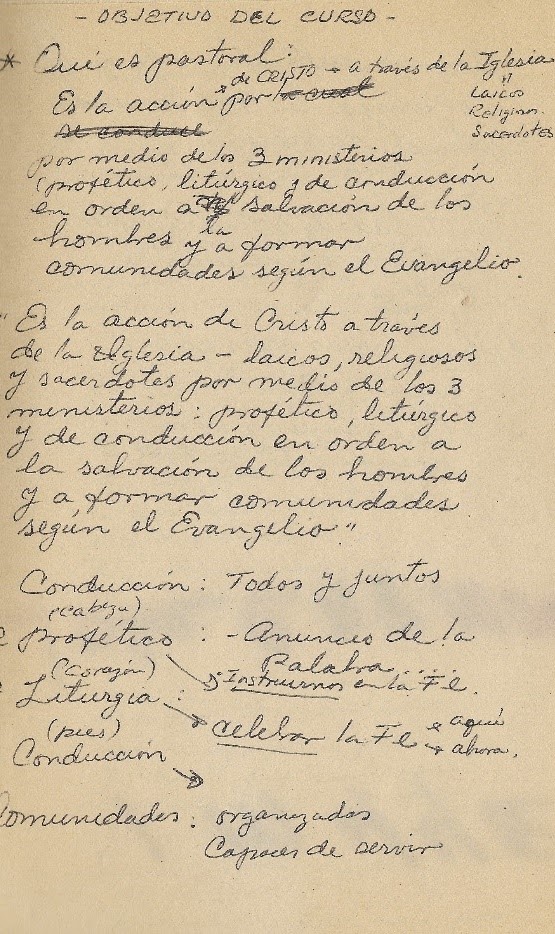 - OBJETIVO DEL CURSO -
* Qué es pastoral:
de CRISTO a través de la Iglesia
Es la acción por la cual
Laicos
Religiosos
Sacerdotes
se conduce
por medio de los 3 ministerios
(profético, litúrgico y de conducción
en orden a la salvación de los
hombres y a formar
comunidades según el Evangelio.
"Es la acción de Cristo a través
de la Iglesia - laicos, religiosos
y sacerdotes por medio de los 3
ministerios: profético, litúrgico
y de conducción en orden a
la salvación de los hombres
y a formar comunidades
según el Evangelio"
Conducción: Todos y juntos
(cabeza)
profético: - Anuncio de la
Palabra....
(corazón)
Instruirnos en la Fe.
Liturgia:
celebrar la Fe aquí
ahora.
(pies)
Conducción
Comunidades: organizadas
Capaces de servir